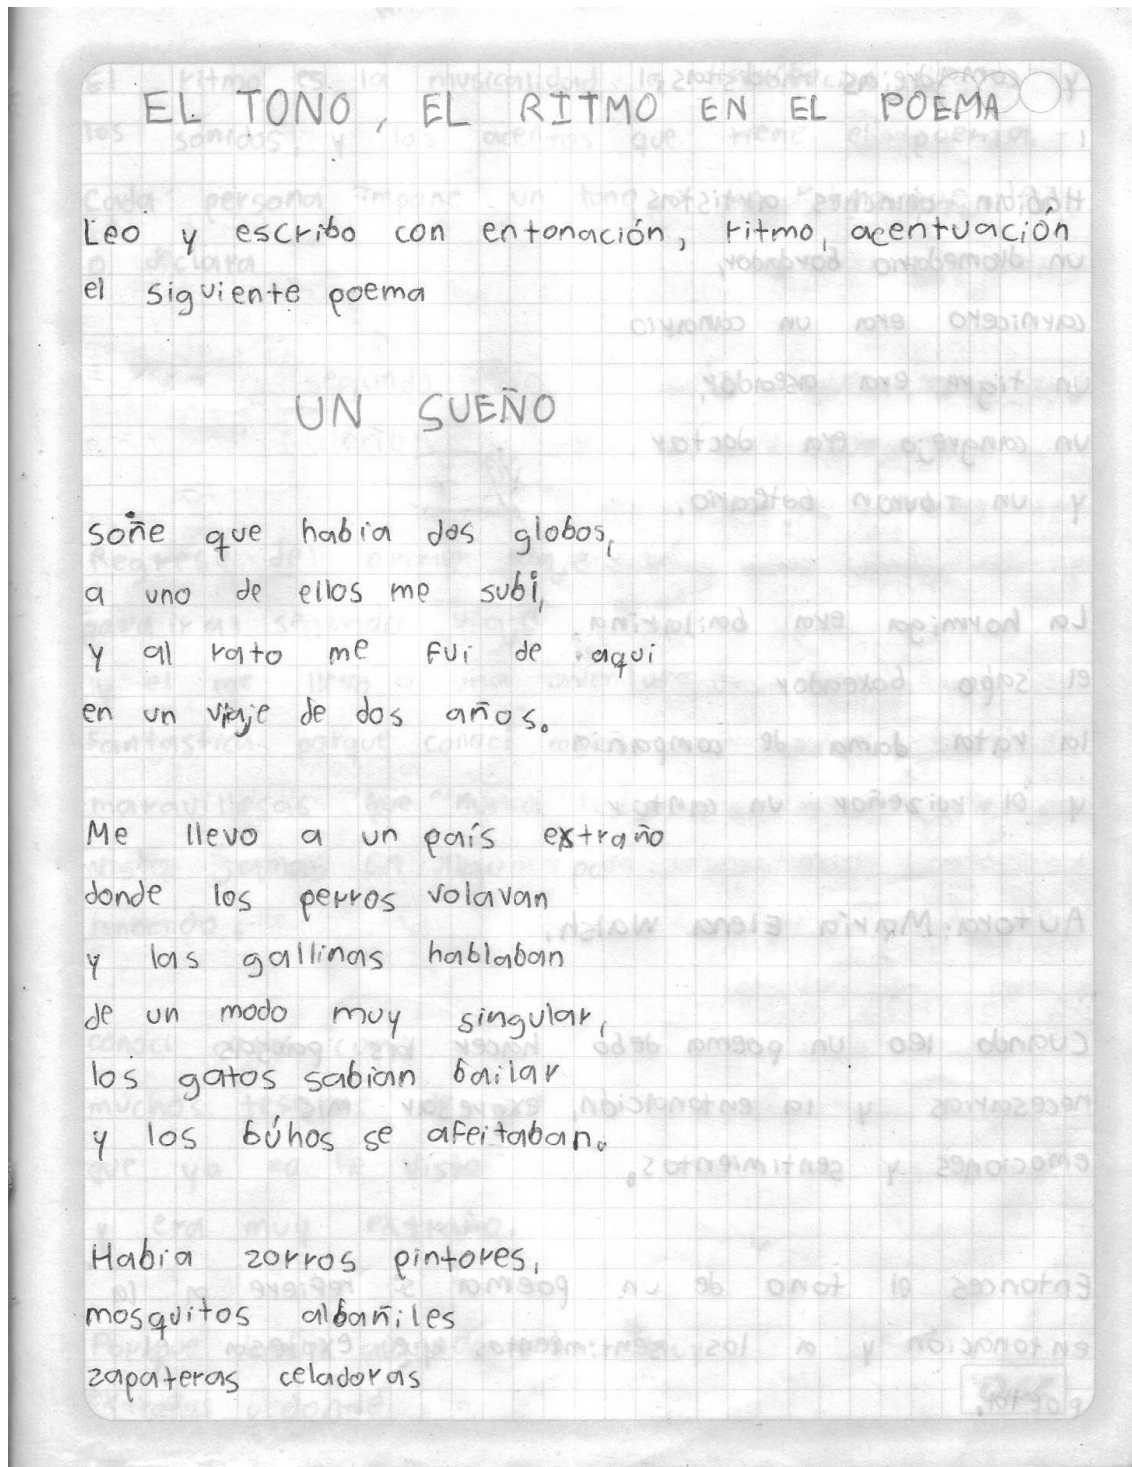 EL TONO, EL RITMO EN EL POEMA
Leo y escribo con entonación, ritmo, acentuación
el siguiente poema
UN SUEÑO
soñe que habia dos globos,
a uno de ellos me subí,
y al rato me fui de aqui
en un viaje de dos años.
Me llevo a un país extraño
donde los perros volavan
y las gallinas hablaban
de un modo muy singular,
los gatos sabian bailar
y los búhos se afeitaban.
Habia zorros pintores,
mosquitos albañiles
zapateras celadoras